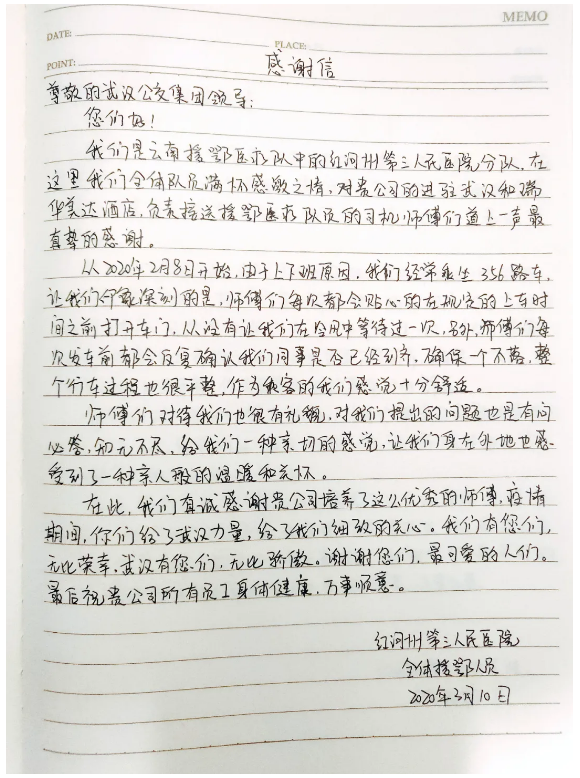 MEMO
DATE:
PLACE:
POINT:
感谢信
尊敬的武汉公交集团领导:
您们好!
我们是云南援鄂医疗队中的红河州第三人民医院分队,在
这里我们全体队员满怀感激之情,对贵公司的进驻武汉和瑞
华美达酒店,负责接送援鄂医疗队员的司机师傅们道上一声最
真挚的感谢。
从2020年2月8日开始,由于上下班原因,我们经常乘坐356路车,
让我们印象深刻的是,师傅们每次都会贴心的在规定的上车时
间之前打开车门,从没有让我们在冷风中等待过一次,另外,师傅们每
次发车前都会反复确认我们同事是否已经到齐,确保一个不落,整
个行车过程也很平整,作为乘客的我们感觉十分舒适。
师傅们对待我们也很有礼貌,对我们提出的问题也是有问
必答,知无不尽,给我们一种亲切的感觉,让我们身在外地也感
受到了一种亲人般的温暖和关怀。
在此,我们真诚感谢贵公司培养了这么优秀的师傅,疫情
期间,你们给了武汉力量,给了我们细致的关心。我们有您们,
无比荣幸,武汉有您们,无比骄傲。谢谢您们,最可爱的人们。
最后祝贵公司所有员工身体健康,万事顺意。
红河州第三人民医院
全体援鄂人员
2020年3月10日